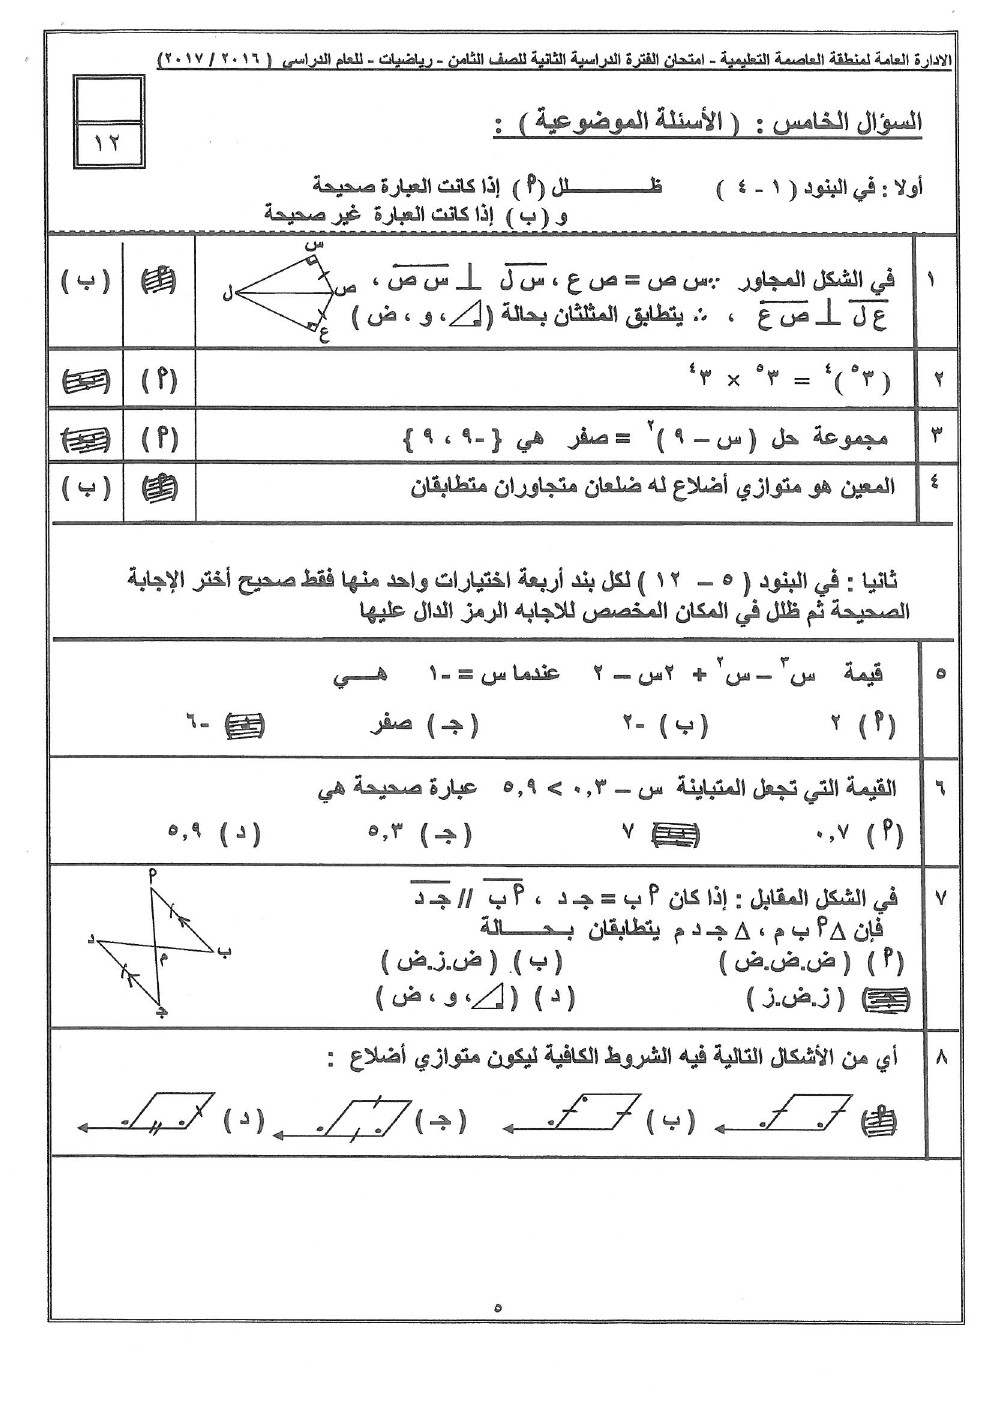 الادارة العامة لمنطقة العاصمة التعليمية - امتحان الفترة الدراسية الثانية للصف الثامن - رياضيات - للعام الدراسي ( ٢٠١٦ / ٢٠١٧ )
١٢
السؤال الخامس : ( الأسئلة الموضوعية ) :
أولا : في البنود ( ١ - ٤ ) ظلل ( ٩ ) إذا كانت العبارة صحيحة
و ( ب ) إذا كانت العبارة غير صحيحة
١ في الشكل المجاور ∵ س ص = ص ع ، س ل ⊥ س ص ، ( ٩ ) ( ب )
ع ل ⊥ ص ع ، ∴ يتطابق المثلثان بحالة ( ◺ ، و ، ض )
س
ل
ص
ع
٢ ( ٣⁵ )⁴ = ٣⁵ × ٣⁴ ( ٩ ) ( ب )
٣ مجموعة حل ( س – ٩ )² = صفر هي { -٩ ، ٩ } ( ٩ ) ( ب )
٤ المعين هو متوازي أضلاع له ضلعان متجاوران متطابقان ( ٩ ) ( ب )
ثانيا : في البنود ( ٥ – ١٢ ) لكل بند أربعة اختيارات واحد منها فقط صحيح أختر الإجابة
الصحيحة ثم ظلل في المكان المخصص للاجابه الرمز الدال عليها
٥ قيمة س³ – س² + ٢س – ٢ عندما س = -١ هــي
( ٩ ) ٢ ( ب ) -٢ ( جـ ) صفر ( د ) -٦
٦ القيمة التي تجعل المتباينة س – ٠,٣ > ٥,٩ عبارة صحيحة هي
( ٩ ) ٠,٧ ( ب ) ٧ ( جـ ) ٥,٣ ( د ) ٥,٩
٧ في الشكل المقابل : إذا كان ٩ ب = جـ د ، ٩ ب // جـ د
فإن Δ ٩ ب م ، Δ جـ د م يتطابقان بـحــالة
( ٩ ) ( ض.ض.ض ) ( ب ) ( ض.ز.ض )
( جـ ) ( ز.ض.ز ) ( د ) ( ◺ ، و ، ض )
٩
د
م
ب
جـ
٨ أي من الأشكال التالية فيه الشروط الكافية ليكون متوازي أضلاع :
( ٩ ) ( ب ) ( جـ ) ( د )
٥